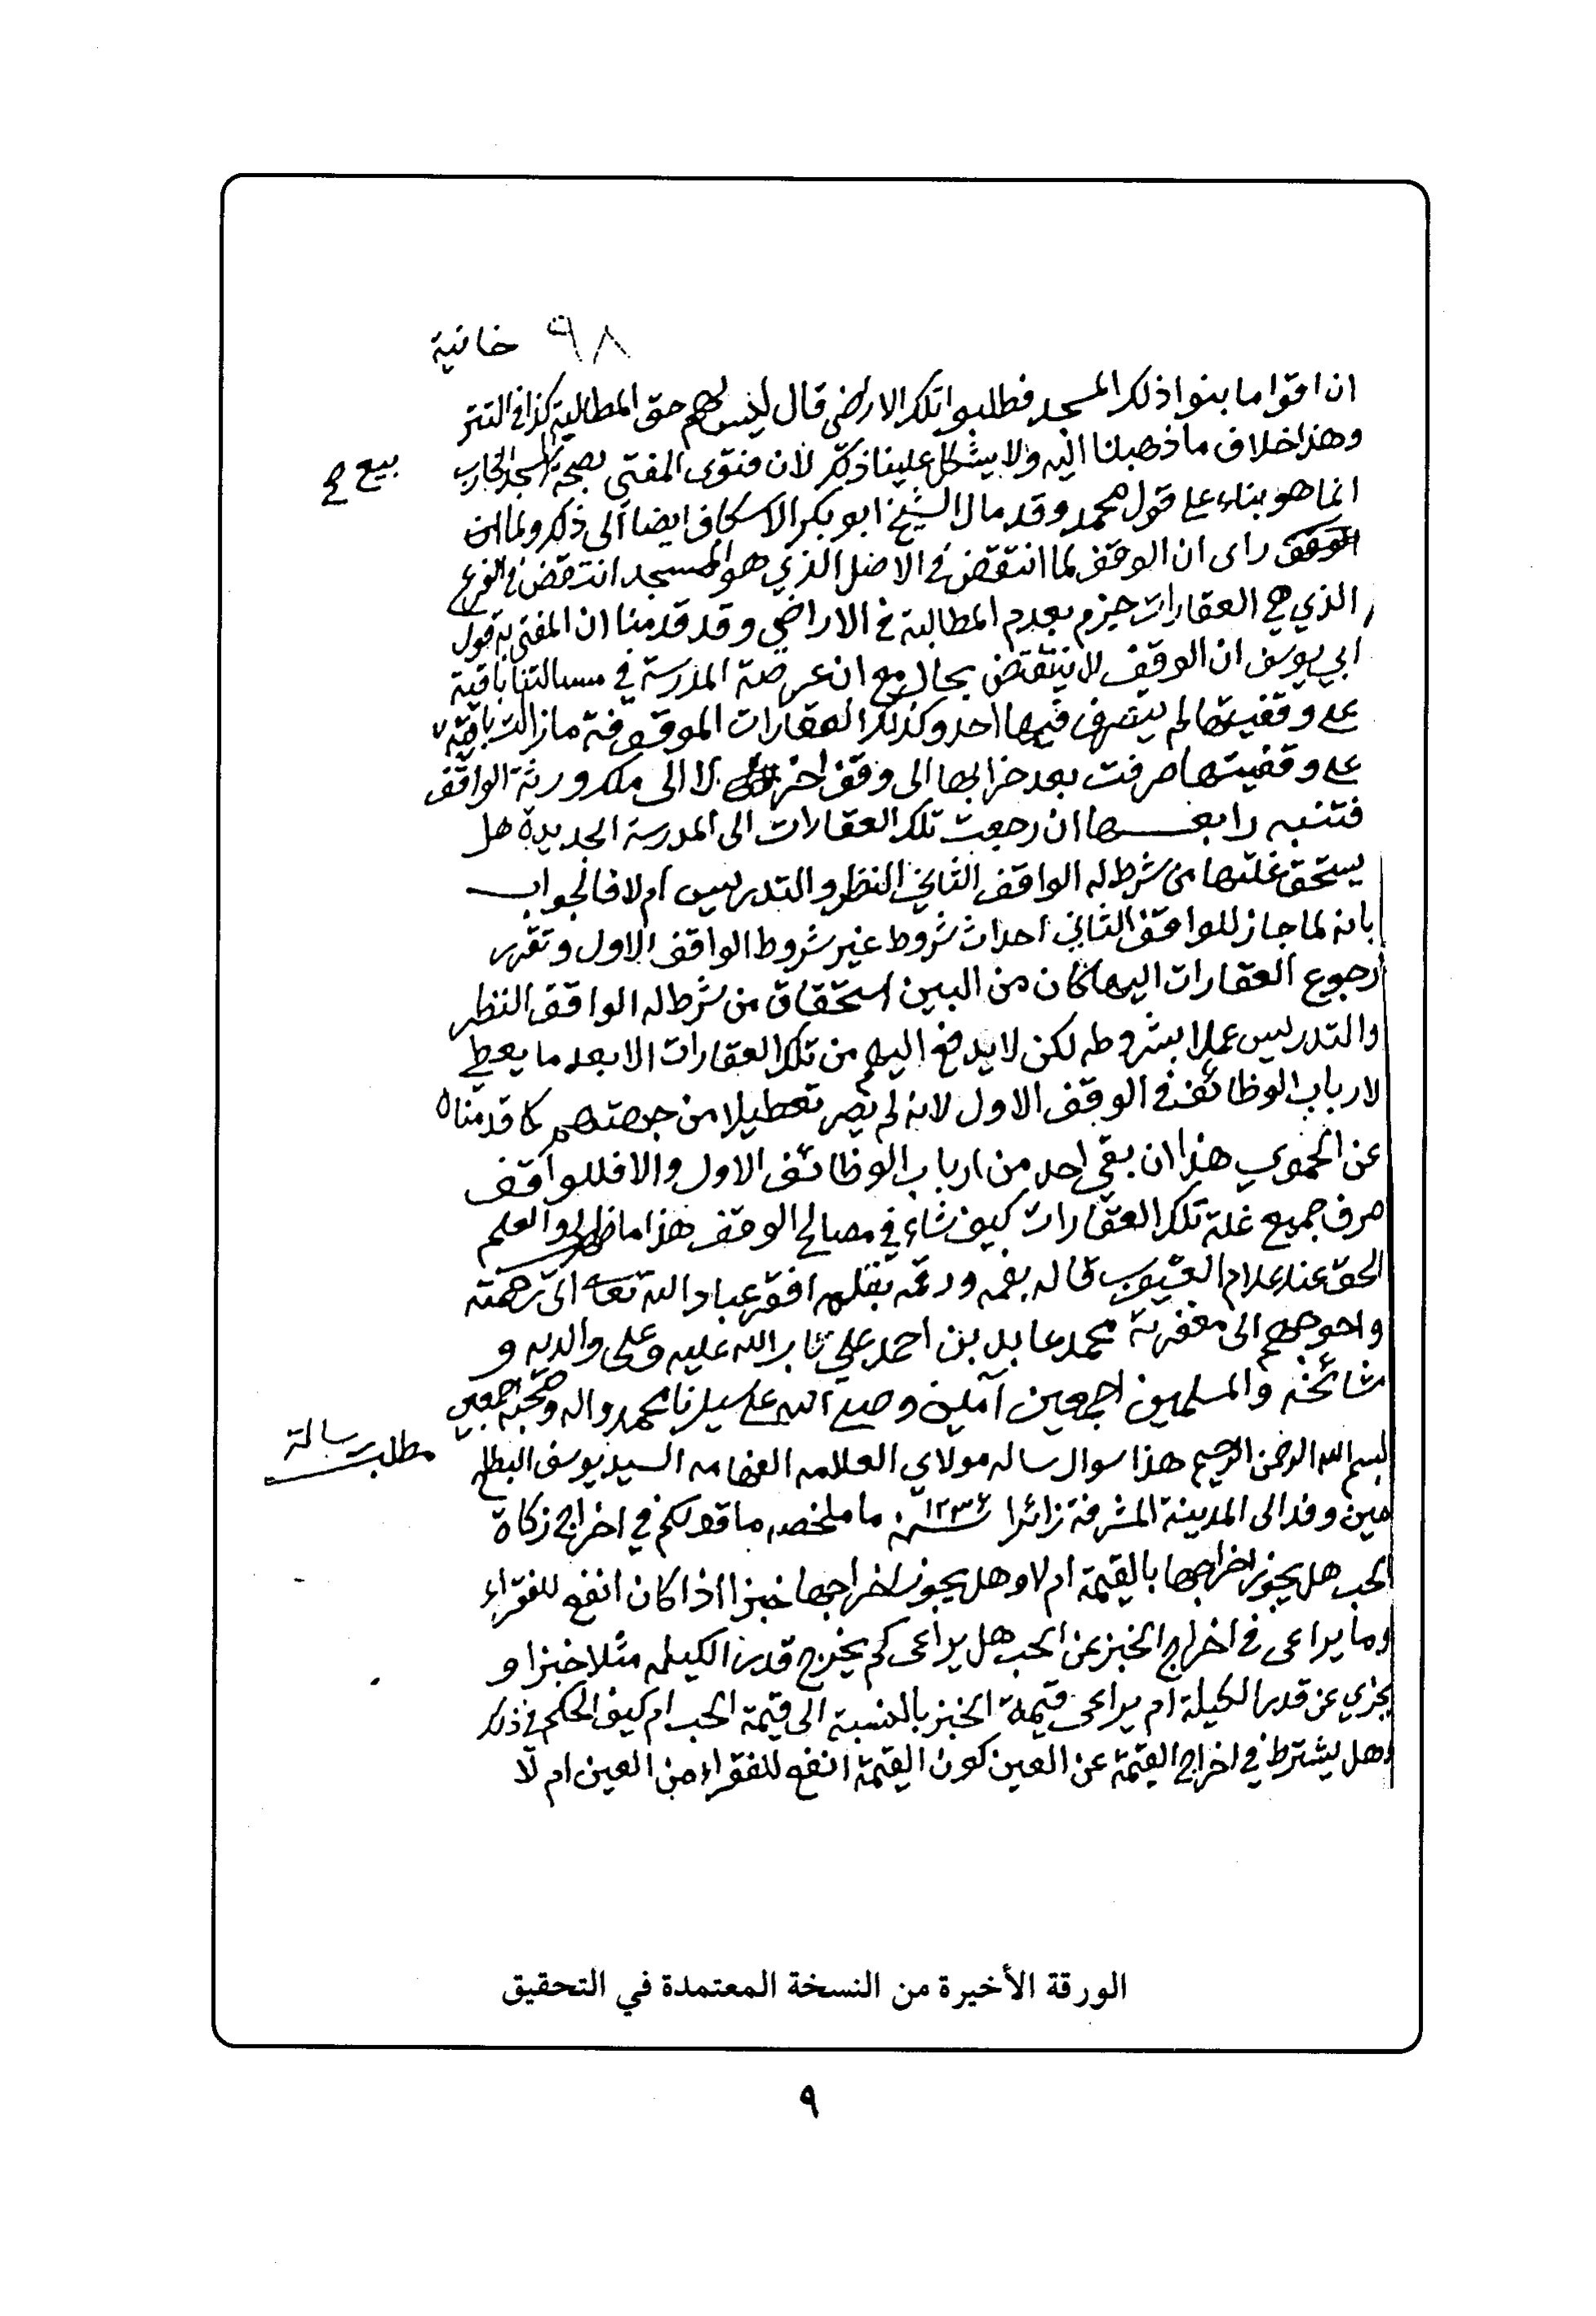 ٩٨ خانية
ان افتوا ما بنوا ذلك المسجد فطلبوا تلك الاراضي قال ليس لهم حق المطالبة كذا في التتر
وهذا خلاف ما ذهبنا اليه ولا يشكل علينا ذلك لان فتوى المفتي بصحة المسجد الخارب
بيع صح
انما هو بناء على قول محمد وقد مال الشيخ ابو بكر الاسكاف ايضا الى ذلك ولما ان
راى ان الوقف لما انتقض في الاصل الذي هو المسجد انتقض في الفرع
الذي هي العقارات جزم بعدم المطالبة في الاراضي وقد قدمنا ان المفتى به قول
ابي يوسف ان الوقف لا ينتقض بحال مع ان عرصة المدرسة في مسالتنا باقية
على وقفيتها لم يتصرف فيها احد وكذلك العقارات الموقوفة ما زالت باقية
على وقفيتها صرفت بعد خرابها الى وقف اخر لا الى ملك ورثة الواقف
فتنبه رابعها ان رجعت تلك العقارات الى المدرسة الجديدة هل
يستحق غلتها من شرط له الواقف الثاني النظر والتدريس ام لا فالجواب
بانه لما جاز للواقف الثاني احداث شروط غير شروط الواقف الاول وتقرر
رجوع العقارات اليها كان من البين استحقاق من شرط له الواقف النظر
والتدريس عملا بشروطه لكن لا يدفع اليهم من تلك العقارات الا بعد ما يعطي
لارباب الوظائف في الوقف الاول لانه لم يصر تعطيلا من جهتهم كما قدمناه
عن الحموي هذا ان بقي احد من ارباب الوظائف الاول والا فللواقف
صرف جميع غلة تلك العقارات كيف شاء في مصالح الوقف هذا ما ظهر لي والعلم
الحق عند علام الغيوب قاله بفمه ورقمه بقلمه افقر عباد الله تعالى الى رحمته
واحوجهم الى مغفرته محمد عابد بن احمد علي تاب الله عليه وعلى والديه و
مشائخه والمسلمين اجمعين آمين وصلى الله على سيدنا محمد واله وصحبه اجمعين
مطلب رسالة
بسم الله الرحمن الرحيم هذا سوال ساله مولاي العلامه الفهامه السيد يوسف البطاح
حين وفد الى المدينة المشرفة زائرا سنة ١٢٣٤ ما ملخصه ما قولكم في اخراج زكاة
الحب هل يجوز اخراجها بالقيمة ام لا وهل يجوز اخراجها خبزا اذا كان انفع للفقراء
وما يراعى في اخراج الخبز عن الحب هل يراعى كم يخرج قدر الكيلة مثلا خبزا و
يجزي عن قدر الكيلة ام يراعى قيمة الخبز بالنسبة الى قيمة الحب ام كيف الحكم في ذلك
وهل يشترط في اخراج القيمة عن العين كون القيمة انفع للفقراء من العين ام لا
الورقة الأخيرة من النسخة المعتمدة في التحقيق
٩